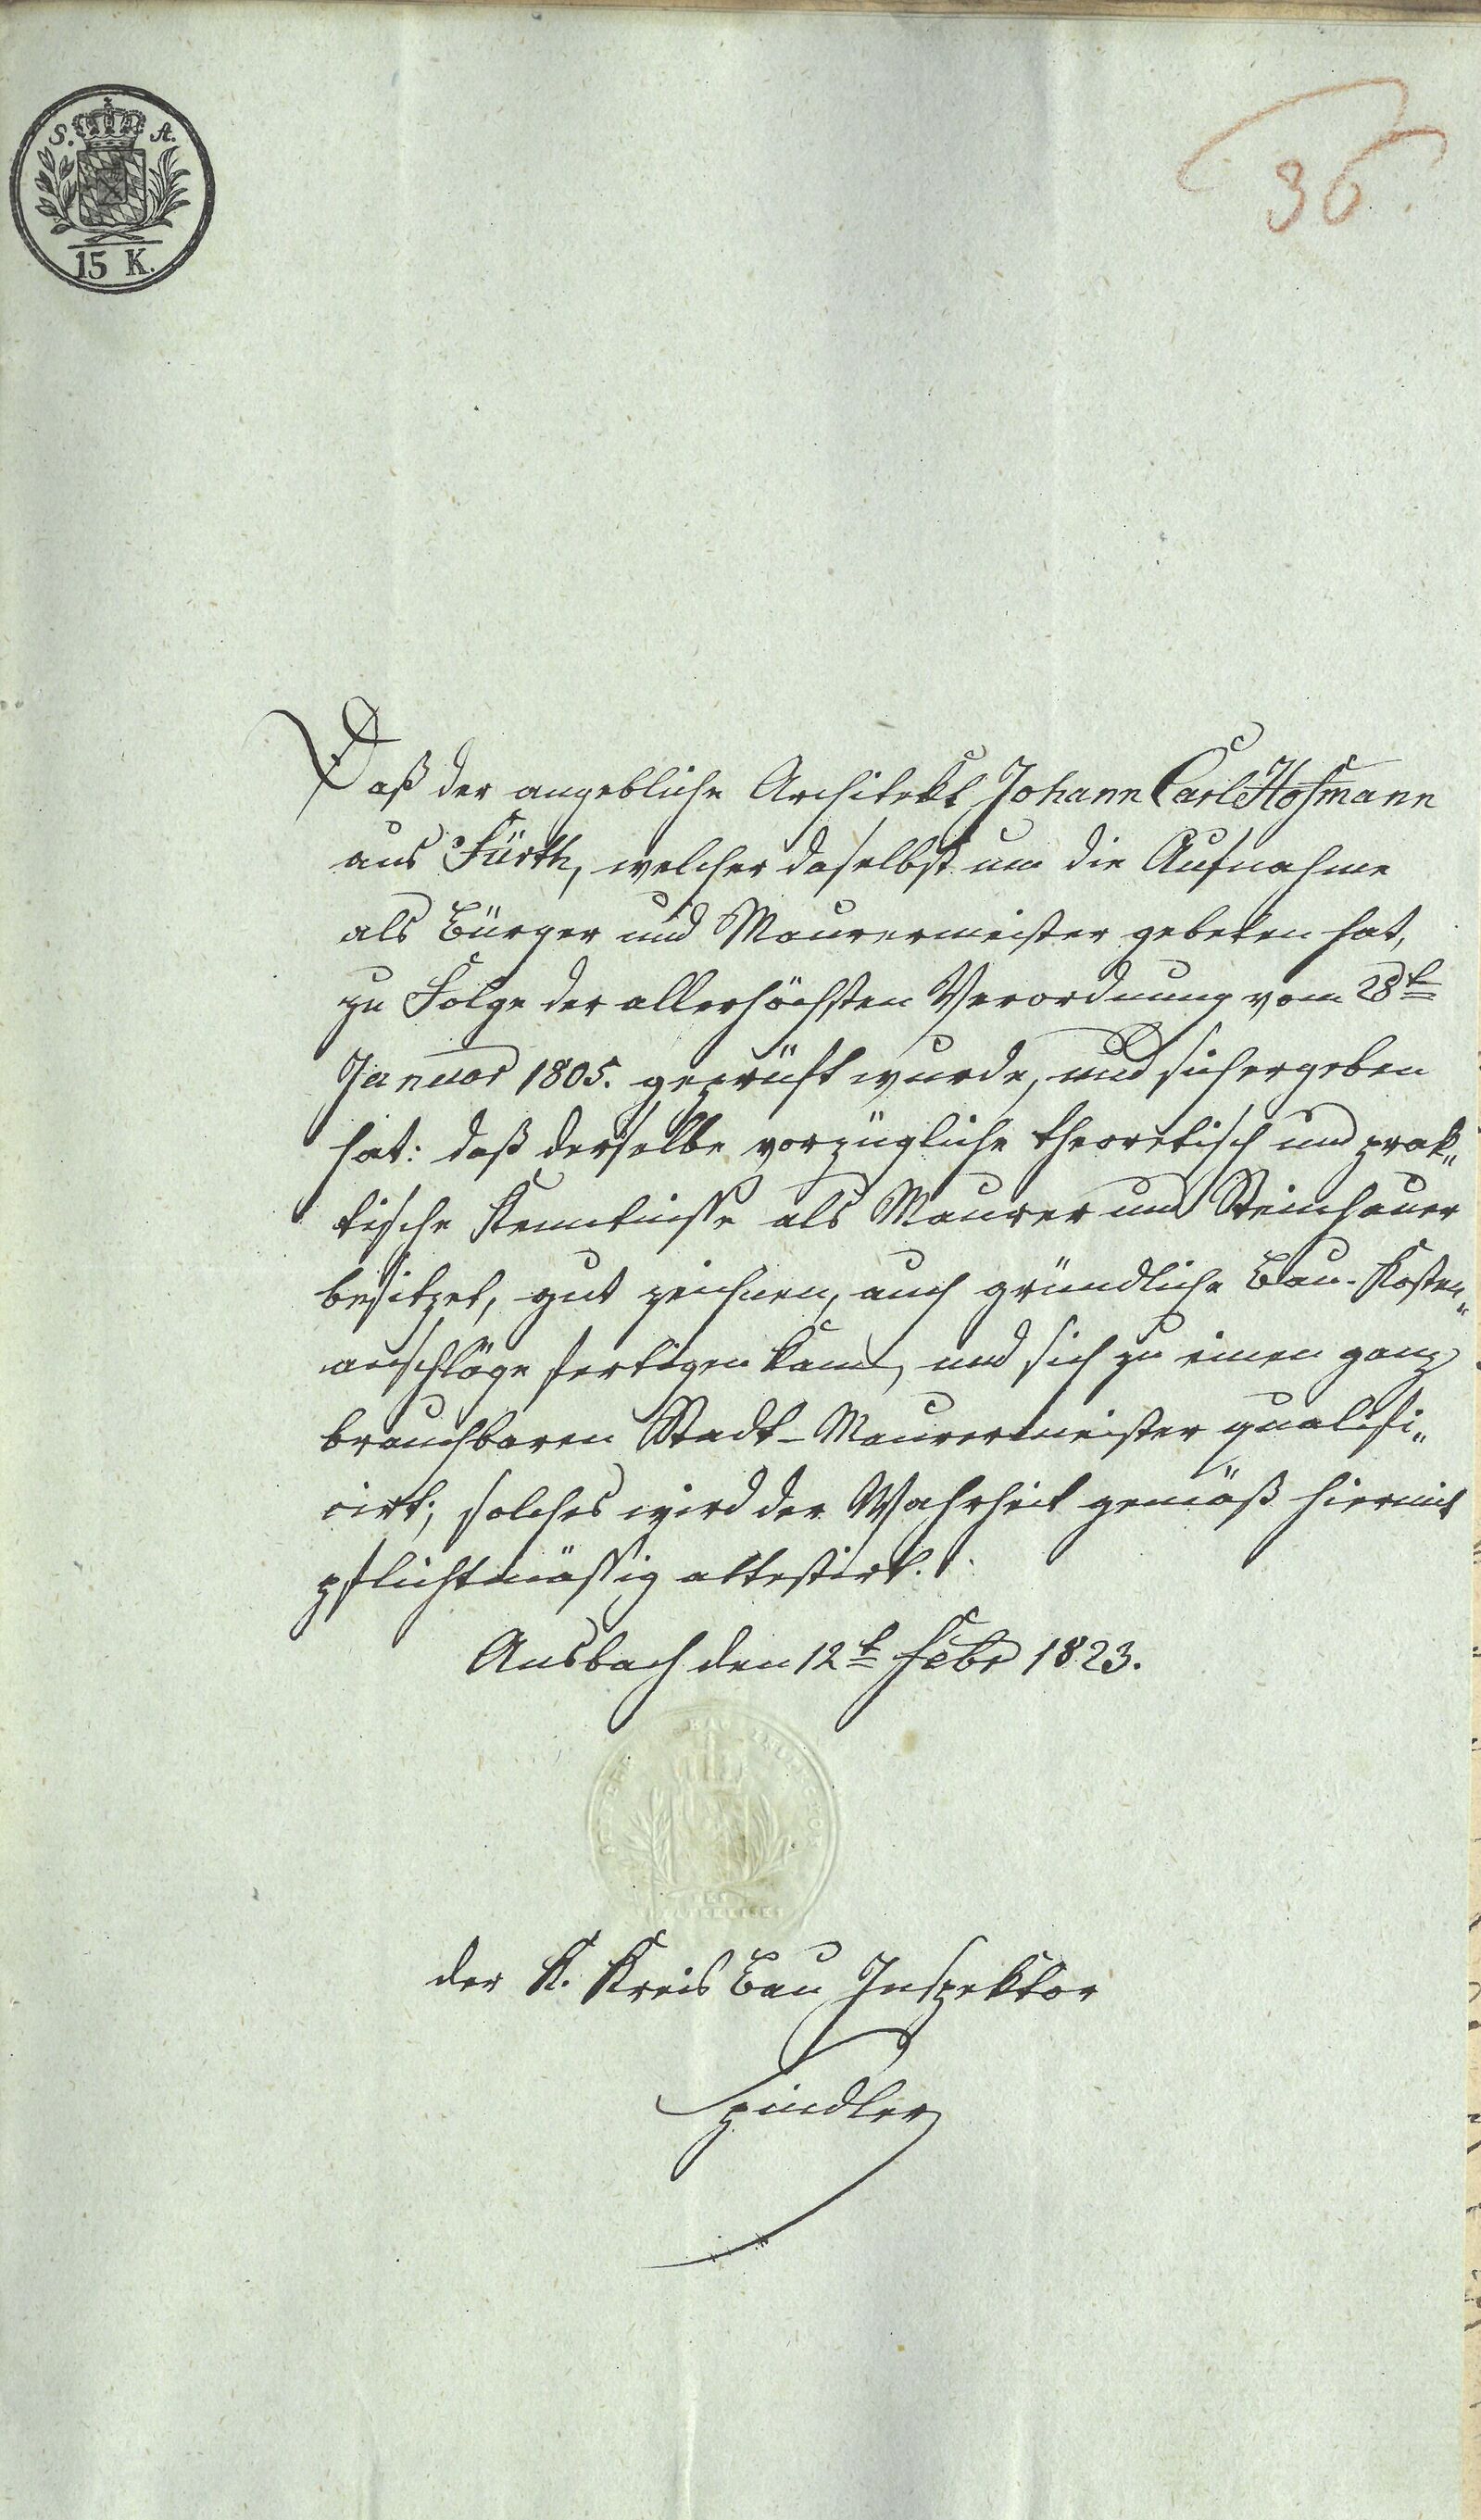 S. A.
15 K.
36.
Daß der angebliche Architekt Johann Carl Hofmann
aus Fürth, welcher daselbst um die Aufnahme
als Bürger und Maurermeister gebeten hat,
zu Folge der allerhöchsten Verordnung vom 28t
Januar 1805. geprüft wurde, und sich ergeben
hat: daß derselbe vorzügliche theoretisch und prak„
tische Kenntnisse als Maurer und Steinhauer
besitzet, gut zeichnen, auch gründliche Bau-Kosten„
anschläge fertigen kann, und sich zu einen ganz
brauchbaren Stadt-Maurermeister qualifi„
cirt; solches wird der Wahrheit gemäß hiermit
pflichtmäßig attestirt.
Ansbach den 12t Febr 1823.
der K. Kreis Bau Inspektor
Spindler